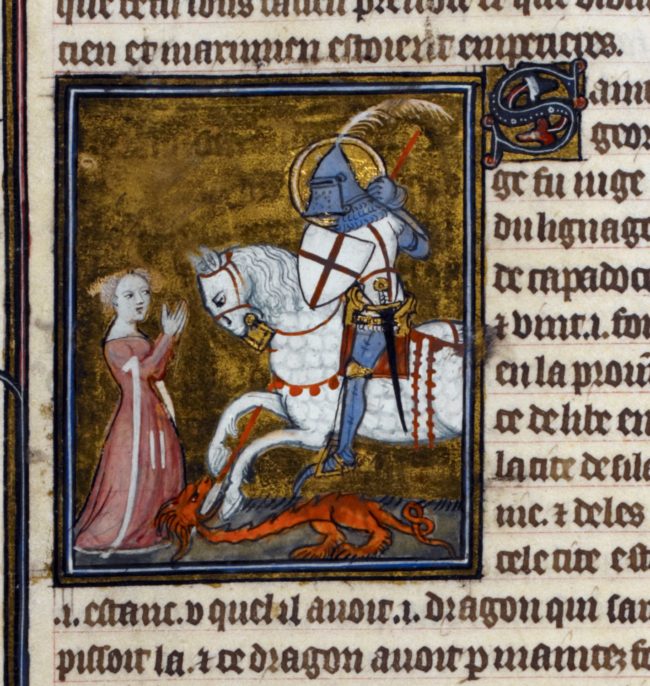 tien et maximien estoient empereres.
Saint
geor
ge fu nige
du lignage
de capadoce
⁊ vint .i. foiz
en la prouin
ce de libe en
la cite de sile
nic. ⁊ deles
cele cite est
.i. estanc. v quel il auoit .i. dragon qui sar
pissoit la. ⁊ ce dragon auoit p maintez fo